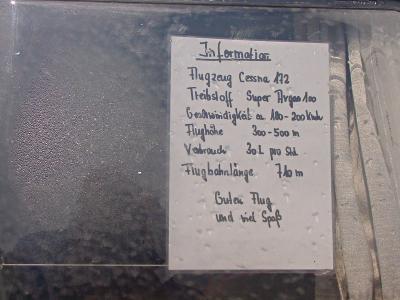 Information
Flugzeug Cessna 172
Treibstoff Super Avgas 100
Geschwindigkeit ca 180-200 Km/h
Flughöhe 300-500 m
Verbrauch 30 L pro Std.
Flugbahnlänge 710 m
Guten Flug
und viel Spaß